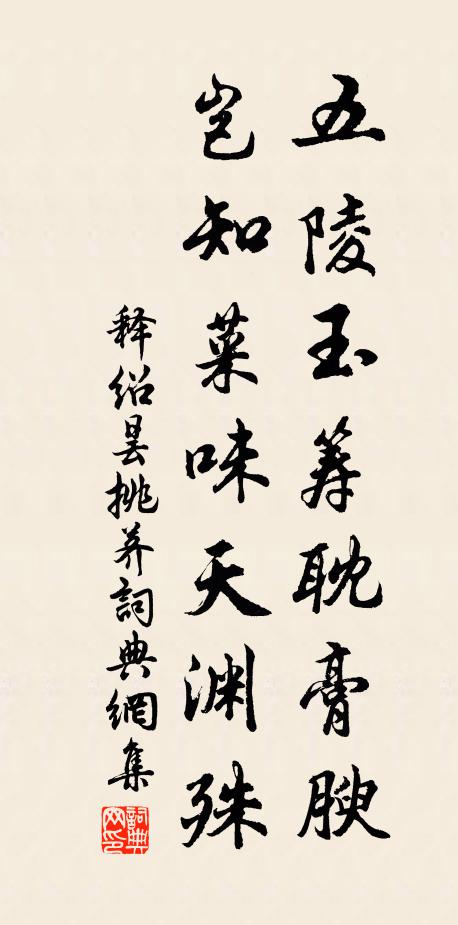 五陵玉筯耽膏腴
岂知菜味天渊殊
释绍昙挑荠詞典網集
詞典網印